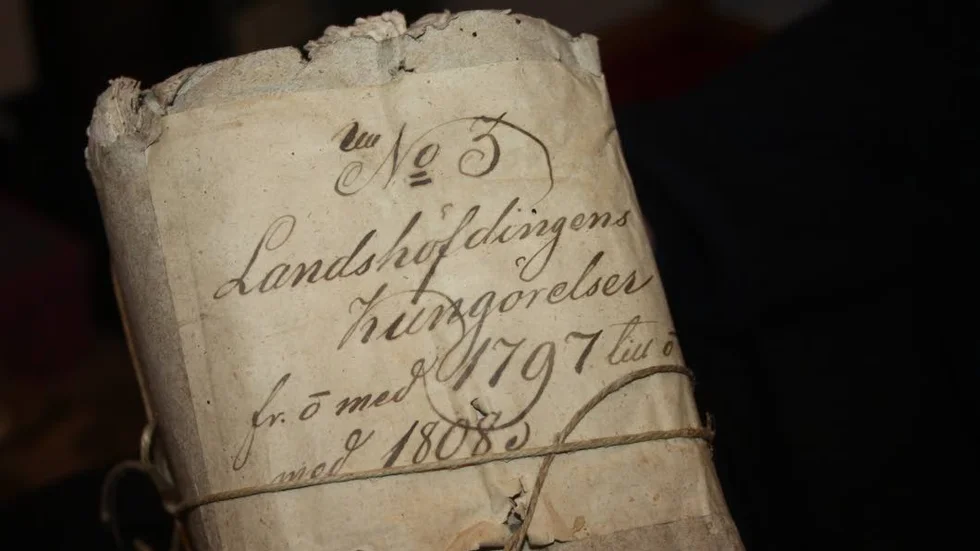 No 3
Landshöfdingens
Kungörelser
fr. o med 1797 till o
med 1808